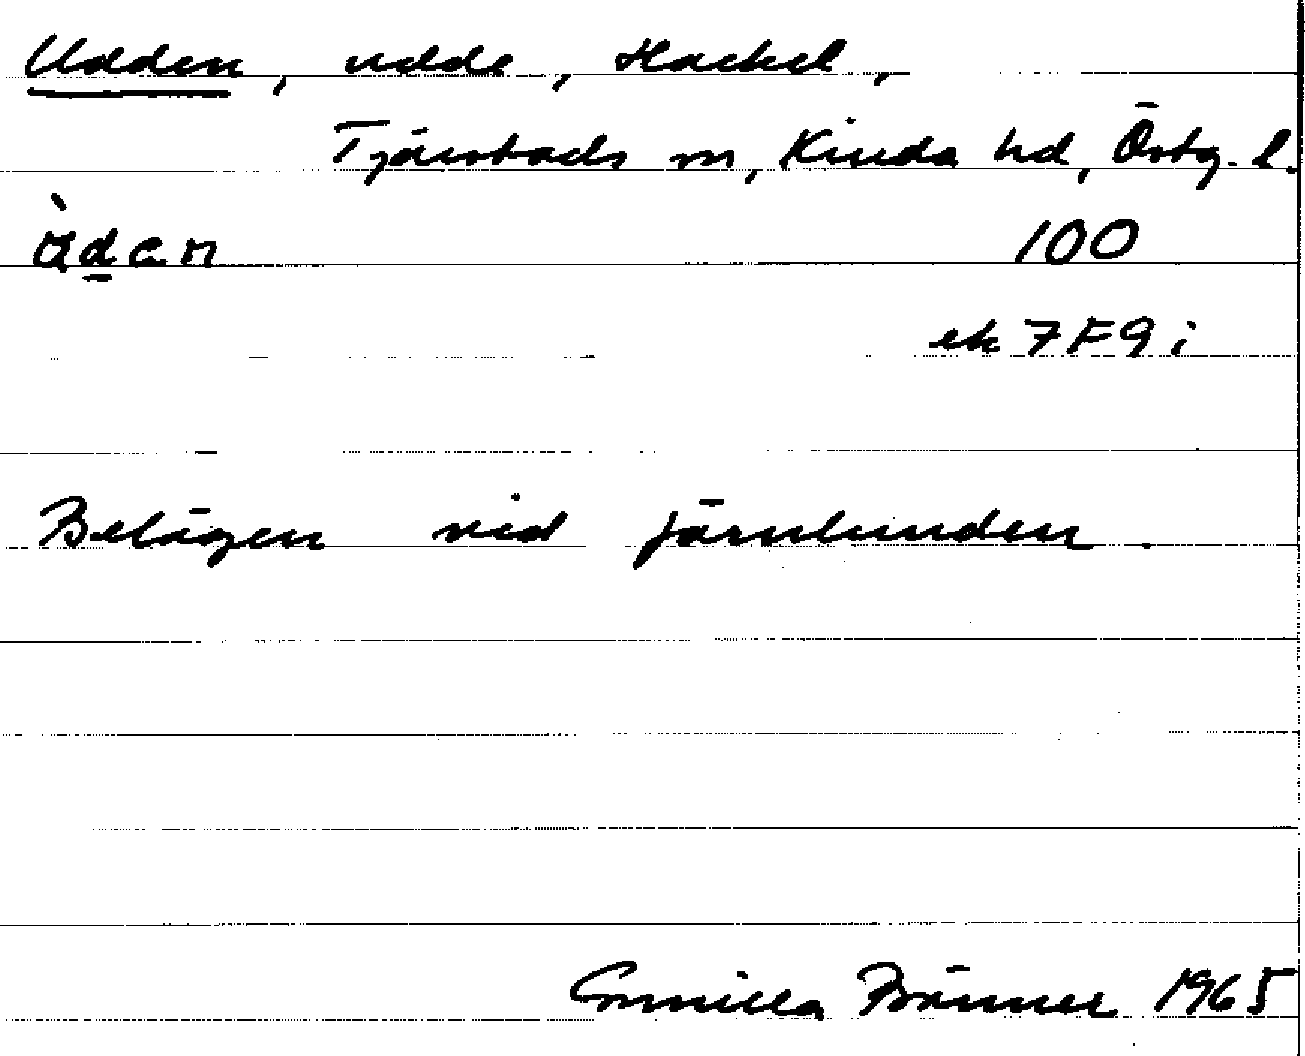 Udden, udde, Hackel,
Tjärstads sn, Kinda hd, Östg. l.
ek 7F9i 100
Belägen vid Järnlunden.
Gunilla 1965